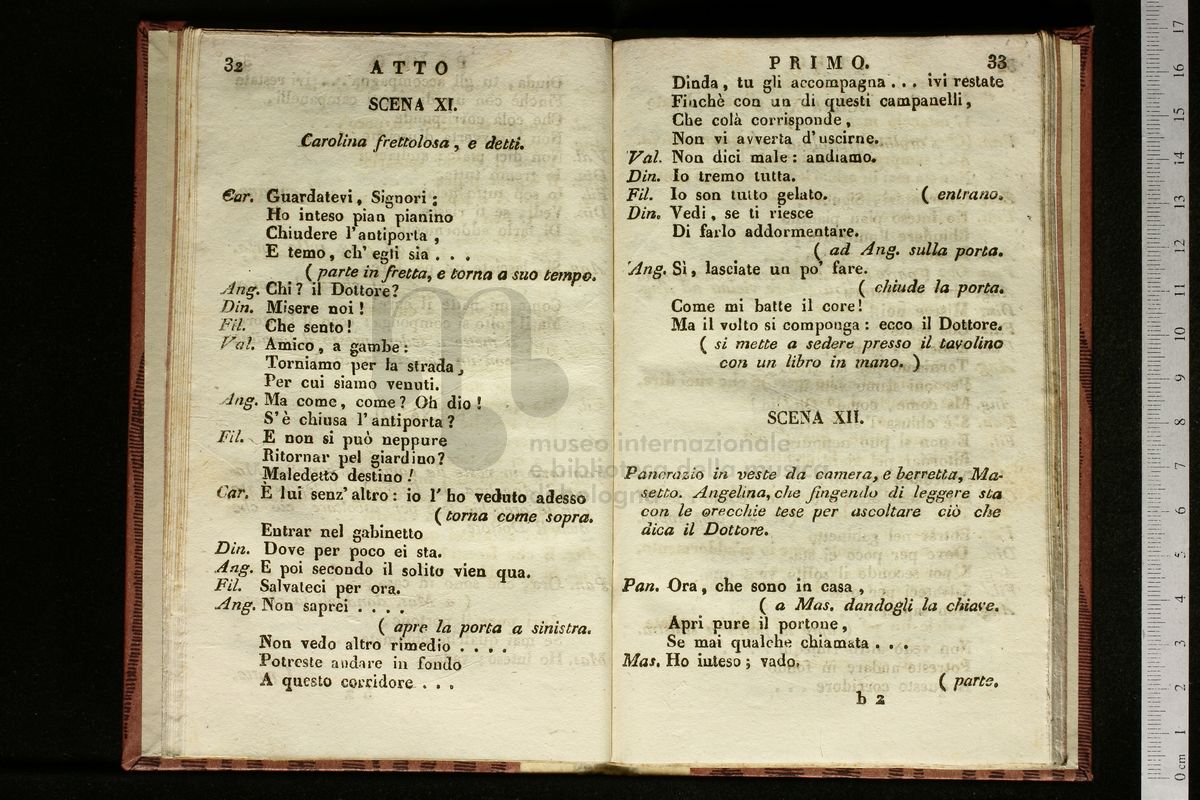 32
ATTO
SCENA XI.
Carolina frettolosa, e detti.
Car. Guardatevi, Signori:
Ho inteso pian pianino
Chiudere l'antiporta,
E temo, ch' egli sia . . .
( parte in fretta, e torna a suo tempo.
Ang. Chi? il Dottore?
Din. Misere noi!
Fil. Che sento!
Val. Amico, a gambe:
Torniamo per la strada,
Per cui siamo venuti.
Ang. Ma come, come? Oh dio!
S'è chiusa l'antiporta?
Fil. E non si può neppure
Ritornar pel giardino?
Maledetto destino!
Car. È lui senz'altro: io l'ho veduto adesso
( torna come sopra.
Entrar nel gabinetto
Din. Dove per poco ei sta.
Ang. E poi secondo il solito vien qua.
Fil. Salvateci per ora.
Ang. Non saprei . . . .
( apre la porta a sinistra.
Non vedo altro rimedio . . . .
Potreste andare in fondo
A questo corridore . . .
PRIMO.
33
Dinda, tu gli accompagna . . . ivi restate
Finchè con un di questi campanelli,
Che colà corrisponde,
Non vi avverta d'uscirne.
Val. Non dici male: andiamo.
Din. Io tremo tutta.
Fil. Io son tutto gelato. ( entrano.
Din. Vedi, se ti riesce
Di farlo addormentare.
( ad Ang. sulla porta.
Ang. Sì, lasciate un po' fare.
( chiude la porta.
Come mi batte il core!
Ma il volto si componga: ecco il Dottore.
( si mette a sedere presso il tavolino
con un libro in mano. )
SCENA XII.
Pancrazio in veste da camera, e berretta, Ma-
setto. Angelina, che fingendo di leggere sta
con le orecchie tese per ascoltare ciò che
dica il Dottore.
Pan. Ora, che sono in casa,
( a Mas. dandogli la chiave.
Apri pure il portone,
Se mai qualche chiamata . . .
Mas. Ho inteso; vado.
( parte.
b 2
museo internazionale
e biblioteca della musica
di bologna
0 cm 1 2 3 4 5 6 7 8 9 10 11 12 13 14 15 16 17